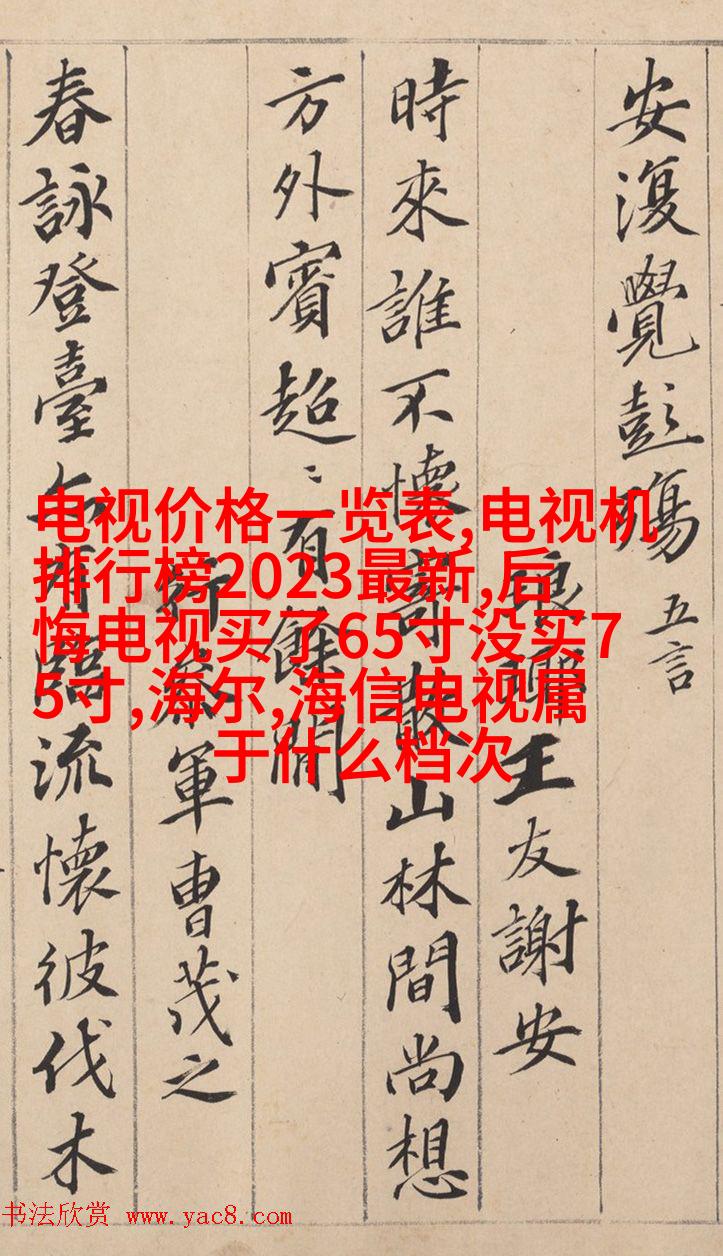 安復覺彭殤 五言
琅琊王友謝安
時來誰不懷寄散山林間尚想
方外賓超〻有餘閒
參軍曹茂之
春詠登臺亦有臨流懷彼伐木
电视价格一览表,电视机
排行榜2023最新,后
悔电视买了65寸没买7
5寸,海尔,海信电视属
于什么档次
书法欣赏 www.yac8.com